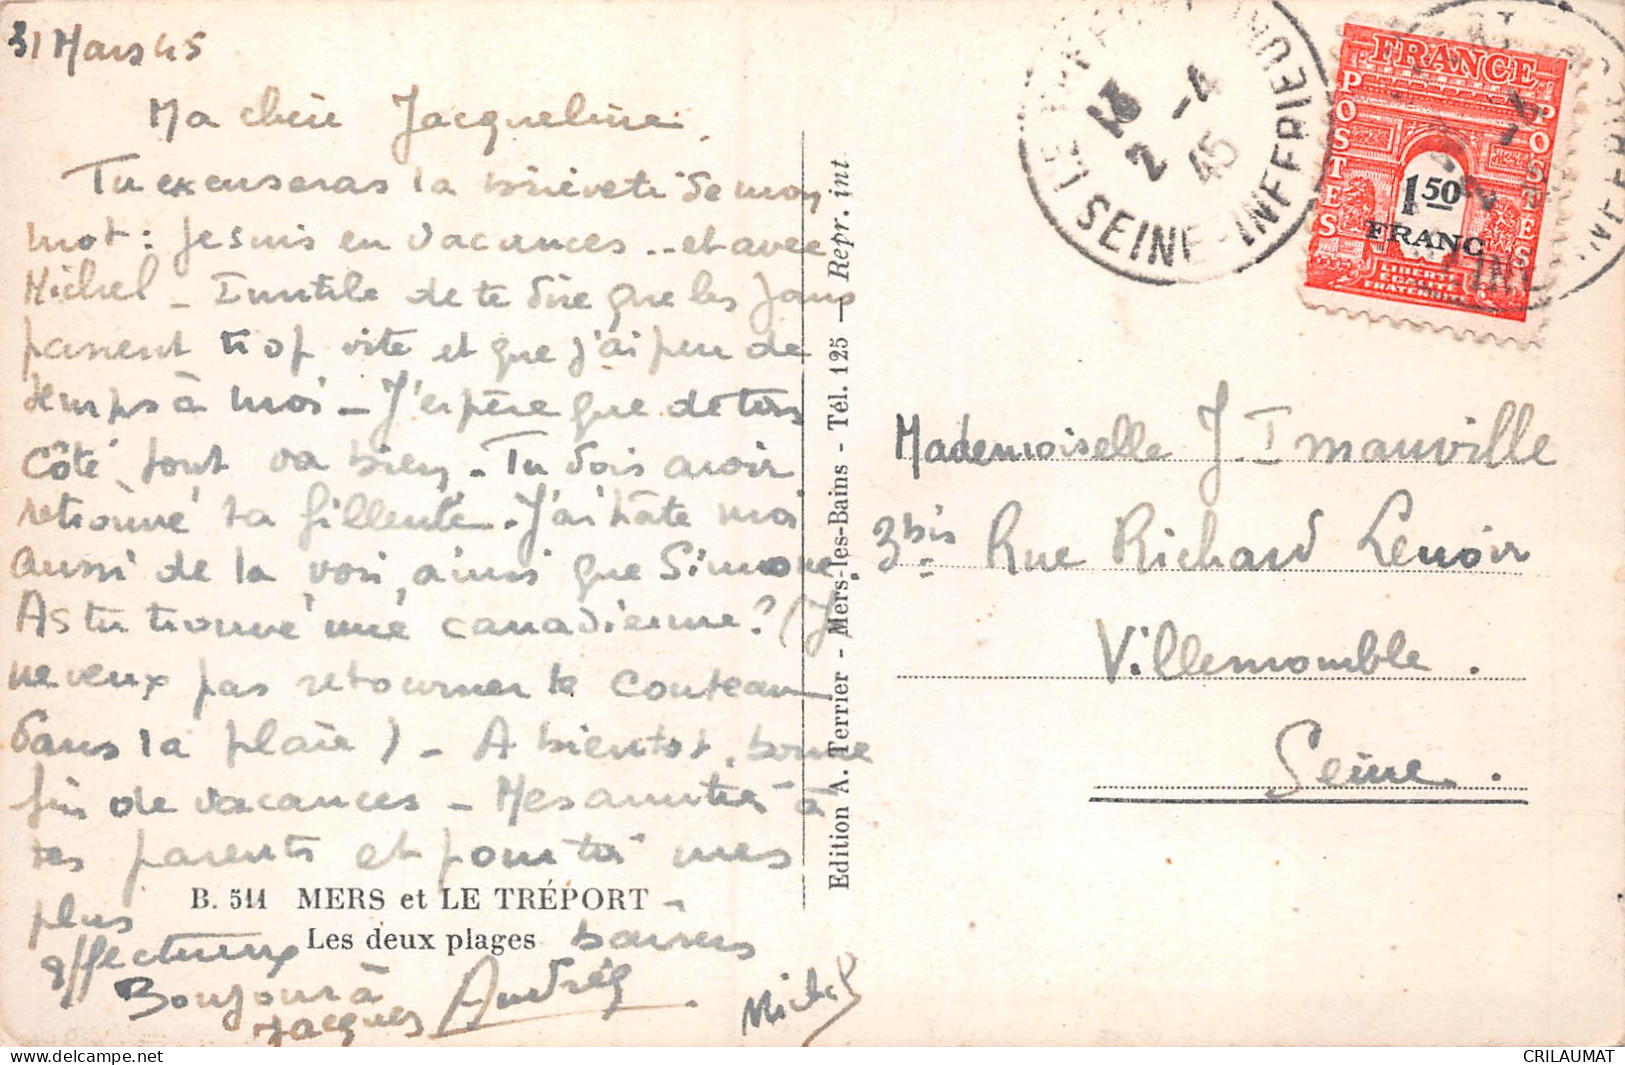 31 Mars 45
Ma chère Jacqueline,
Tu excuseras la brièveté de mon
mot : Je suis en vacances .. et avec
Michel - Inutile de te dire que les jours
passent trop vite et que j'ai peu de
temps à moi - J'espère que de ton
côté tout va bien - Tu dois avoir
retrouvé ta fillente. J'ai hâte moi
aussi de la voir, ainsi que Simone.
As tu trouvé une canadienne ? (Je
ne veux pas retourner le couteau
dans la plaie) - A bientôt, bonne
fin de vacances - Mes amitiés à
tes parents et pour toi mes
plus
affectueux baisers
Andrée
Bonjour à
Jacques
Michel
B. 511 MERS et LE TRÉPORT -
Les deux plages
Edition A. Terrier - Mers-les-Bains - Tél. 125 - Repr. int
LE TRÉPORT SEINE-INFERIEURE
13
2 -4
45
FRANCE
POSTES
POSTES
1 50
FRANC
LIBERTÉ
EGALITÉ
FRATERNITÉ
Mademoiselle J Imauville
3 bis Rue Richard Lenoir
Villemomble.
Seine.
CRILAUMAT